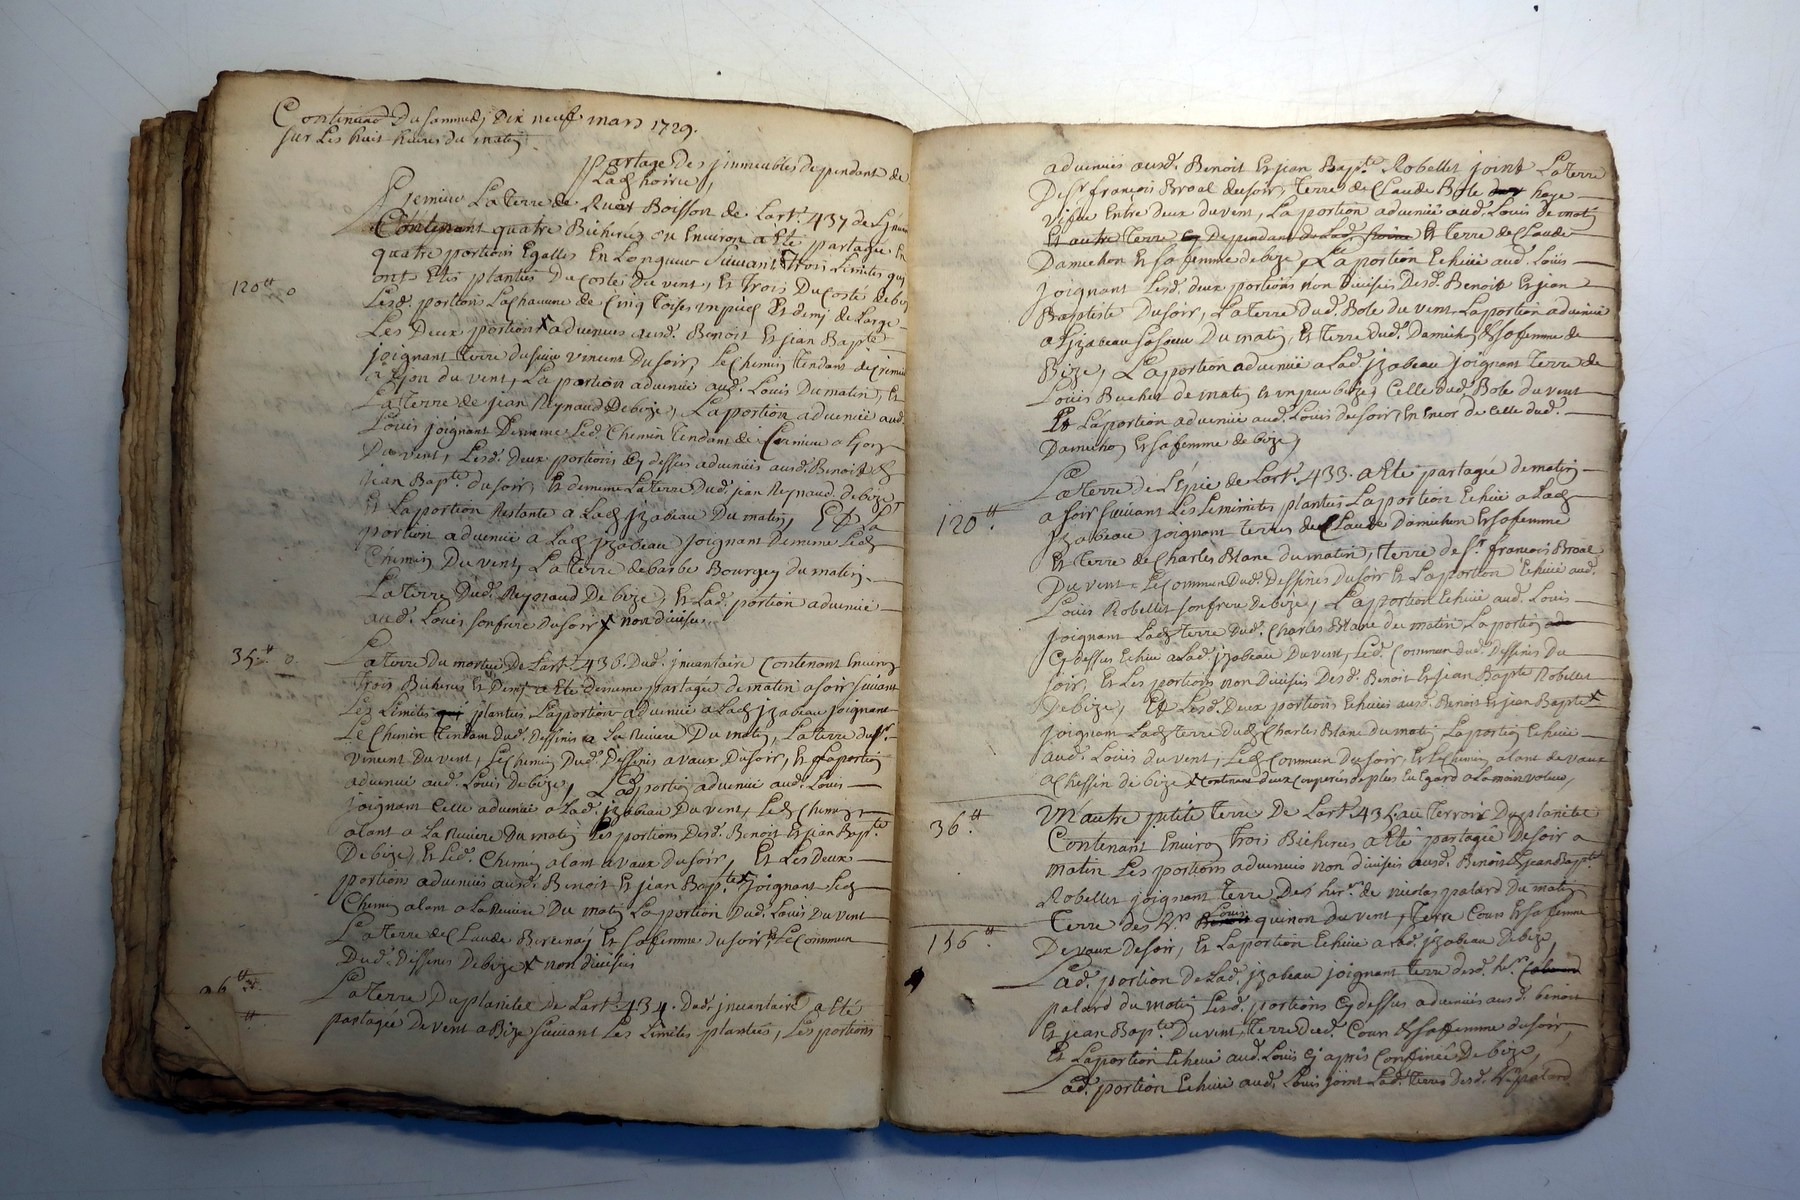 Continuaõn Du sammedj Dix neuf mars 1729.
sur Les huit heures du matin
partage Des jmmeubles dependant de
Lad hoirie,
Premiere La Terre de Buis Boisson de Lart. 437 de L'jnv
Contenant quatre Bicherées ou Environ a Eté partagée En
quatre portions Egalles En Longueur suivant Trois Limites quj
120tt o
ont Etés plantées Du costé Du vent, Et Trois Du Costé de bize
Lesd. portions Lachacune de Cinq Toises un pied Et demj de Large
Les Deux portions x advenues ausd. Benoit Et jean Bapte
joignant Terre du sieur vincent Du soir, Le Chemin Tendant de Cremieu
a Lyon du vent, La portion advenuë aud. Louis Du matin, Et
La Terre de jean Reynaud De bize, La portion advenuë aud.
Louis joignant De meme Led. Chemin Tendant de Cremieu a Lyon
Du vent, Lesd. deux portions Cy dessus advenuës ausd. Benoit &
jean Bapte du soir, Et de meme La Terre Dud. jean Reynaud de bize,
Et La portion Restante a Lad jzabeau Du matin, Et La
portion advenuë a Lad jzabeau joignant De meme Led
Chemin Du vent, La Terre de barbe Bourgey du matin
La Terre Dud. Reynaud De bize, Et Lad. portion advenuë
aud. Louis son frere Du soir x non divisées
35tt o.
La Terre Du mortier De Lart. 436. Dud. jnventaire Contenant Environ
Trois Bicherées Et Demj a Eté de meme partagée de matin a soir suivant
Les Limites plantées La portion advenuë a Lad jzabeau joignant
Le Chemin Tendant Dud. Dessines a La Riviere Du matin, La terre du Sr.
vincent Du vent, Le Chemin Dud. Dessines a vaux Du soir, Et La portion
advenuë aud. Louis De bize, Lad portion advenuë aud. Louis
joignant Celle advenuë a Lad. jzabeau Du vent, Led Chemin
alant a La Riviere Du matin Les portions Desd. Benoit Et jean Bapte.
De bize, Et Led. Chemin alant a vaux Du soir, Et Les Deux
portions advenuës ausd. Benoit Et jean Bapte x joignant Led
Chemin alant a La Riviere Du matin La portion Dud. Louis Du vent
La Terre de Claude Et sa femme du soir Et Le Commun
Dud. Dessines De bize x non divisées
La Terre Du planitet de Lart. 434. Dud. jnventaire a Eté
partagée De vent a Bize suivant Les Limites plantées, Les portions
advenuës ausd. Benoit Et jean Bapte. Robellet joint La Terre
De Sr françois Broal du soir, Terre de Claude Bole haye
vifve Entre deux du vent, La portion advenuë aud. Louis de matin
Et autre Terre Cy Dependant de Lad. hoirie Et Terre de Claude
Damichon Et sa femme de bize, La portion Echuë aud. Louis
joignant Lesd. deux portions non divisées Desd. Benoit Et jean
Baptiste Du soir, La Terre Dud. Bole du vent La portion advenuë
a jzabeau sa soeur Du matin, Et Terre dud. Damichon & sa femme de
Bize, La portion advenuë a Lad. jzabeau joignant Terre de
Louis Buchet de matin Et un peu bize, Celle dud. Bole du vent
Et La portion advenuë aud. Louis du soir, Et Encor de Celle dud.
Damichon Et sa femme de bize,
La Terre de L'Epie de Lart. 433. a Eté partagée de matin
120tt.
a soir suivant Les Limites plantées La portion Echuë a Lad
jzabeau joignant Terres de Claude Damichon Et sa femme
Et Terre de Charles Blanc du matin, Terre de Sr. françois Broal
Du vent Le Commun Dud. Dessines Du soir Et La portion Echuë aud.
Louis Robellet son frere De bize, La portion Echuë aud. Louis
joignant Lad Terre Dud. Charles Blanc du matin La portion
Cy dessus Echuë a Lad. jzabeau Du vent, Led. Commun dud. Dessines Du
soir, Et Les portions non Divisées Desd. Benoit Et jean Bapte Robellet
De bize, Et Lesd. Deux portions Echuës ausd. Benoit Et jean Bapte x
joignant Lad Terre dud Charles Blanc Du matin La portion Echuë
aud. Louis du vent, Led Commun Du soir, Et Le Chemin alant de vaux
a Chessin de bize x Contenant deux Couperées de plus Eu Egard a La moin valeur,
36tt.
Un autre petite Terre De Lart. 435. au Terroir Du planitet
Contenant Environ Trois Bicherées a Eté partagée De soir a
matin Les portions advenuës non divisées ausd. Benoit Et jean Bapte
Robellet joignant Terre Des hers. de nicolas palard Du matin
Terre des hrs Louis quinon du vent, Terre Cours Et sa femme
156tt.
De vaux De soir, Et La portion Echuë a Lad. jzabeau De bize,
Lad. portion De Lad. jzabeau joignant Terre desd. hrs
palard du matin Lesd. portions Cy dessus advenuës ausd. benoit
Et jean Bapte. Du vent, Terre dud. Cours & sa femme du soir,
Et La portion Echuë aud. Louis Cy aprés Confinée De bize,
Lad. portion Echuë aud. Louis joint Lad. Terres Desd. hrs palard